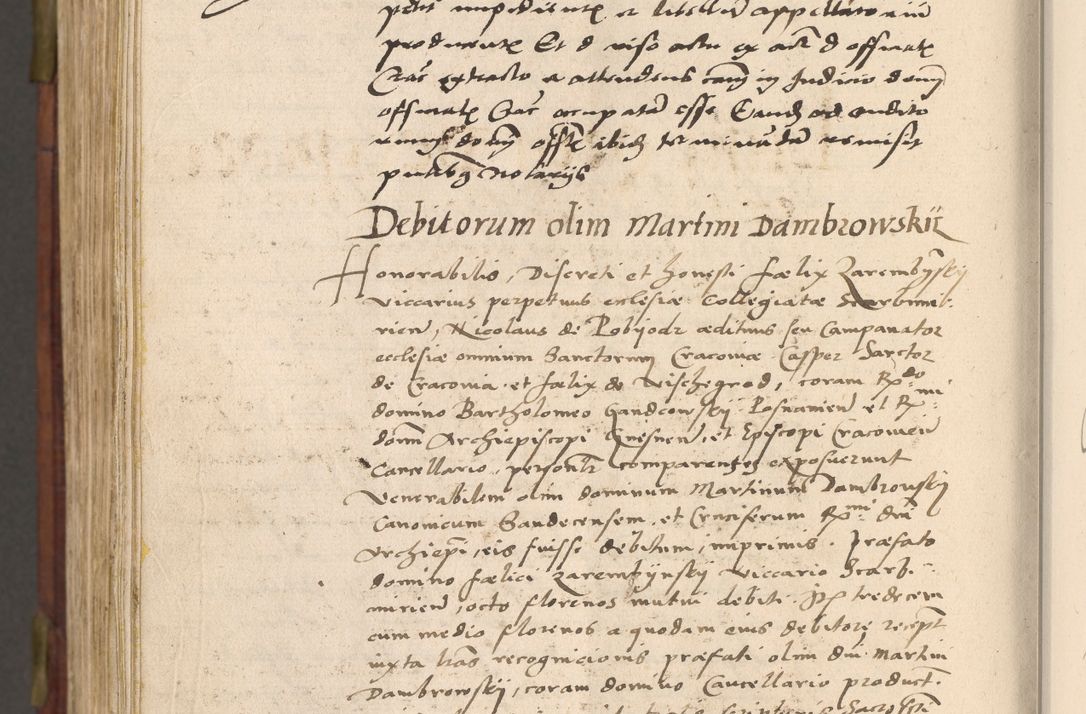 petit impedimenta et libellum appellatorium
producente Et d viso actu ex act d officialis
Crac extracto a attendens cam in Judicio domini
officialis Crac occupatam esse Eand ad audito
domini offlis ibidem terminandam remisit
putibus Notarijs
Debitorum olim Martini Dambrowskij
Honorabilis, Discreti et honesti fælix Zarembijnskij
Viccarius perpetuus ecclesiæ Collegiatæ Scarbimi-
rien, Nicolaus de Pobijodr ædituus seu Campanator
ecclesiæ omnium Sanctorum Cracoviæ Casper Sarctor
de Cracovia et fælix de Vischegrod, coram Rdo
domino Bartholomeo Gandcowskij Posnanien et Rmi
domi Archiepiscopi Gnesnen, et Episcopi Cracovien
Cancellario, personlr comparentes exposuerunt
Venerabilem olim dominum Martinum Dambrowskij
Canonicum Sandecensem, et Cruciferum Rmi dni
Archiepi, eis fuisse debitum, imprimis. Præfato
domino fælici Zarembijnskij Viccario Scarbi-
mirien, octo florenos mutui debiti. Ix tredecem
cum medio florenos a quodam eius debitore recept
iuxta lras recognicionis præfati olim dni Martini
Dambrowskij, coram domino Cancellario product.